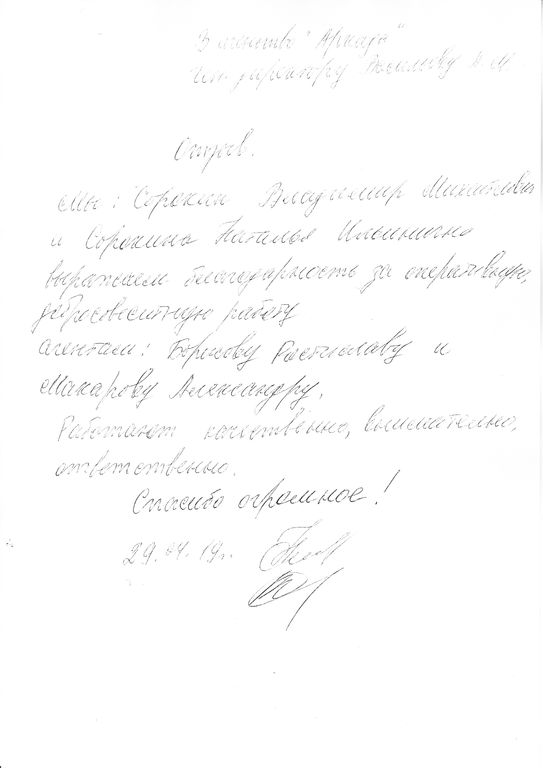 В агентство "Аркада"
Ген. директору
Отзыв.
Мы: Сорокин Владимир Михайлович
и Сорокина Наталья Ильинична
выражаем благодарность за оперативную,
добросовестную работу
агентам: Борисову Ростиславу и
Макарову Александру.
Работают качественно, внимательно,
ответственно.
Спасибо огромное!
29.04.19г.